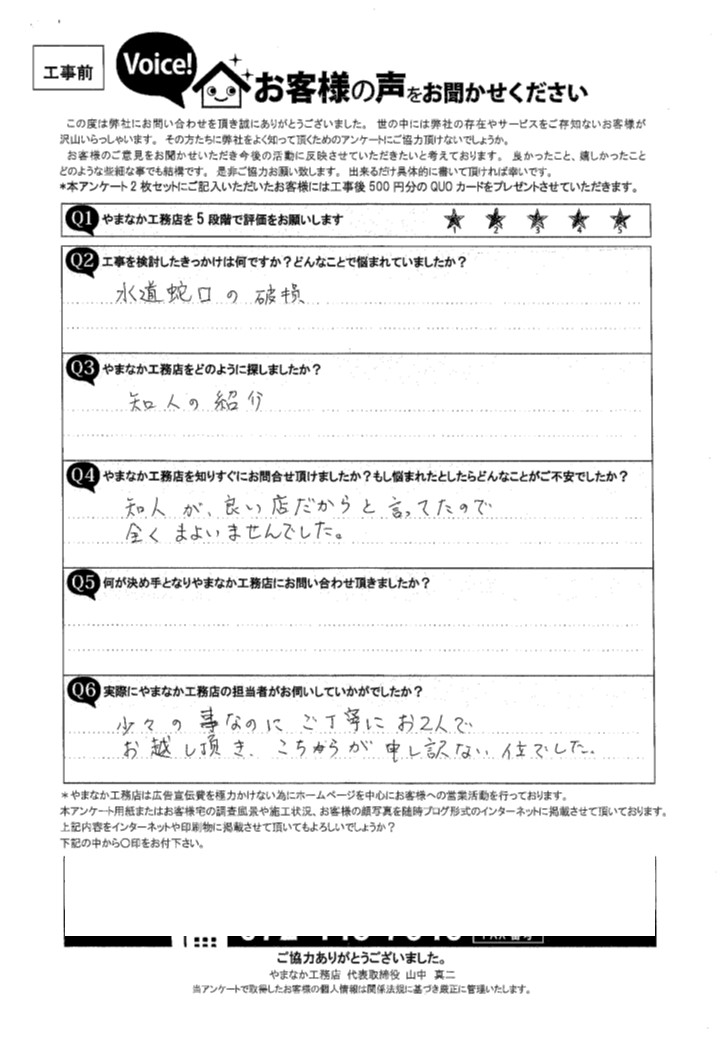 工事前
Voice!
お客様の声をお聞かせください
この度は弊社にお問い合わせを頂き誠にありがとうございました。 世の中には弊社の存在やサービスをご存知ないお客様が
沢山いらっしゃいます。 その方たちに弊社をよく知って頂くためのアンケートにご協力頂けないでしょうか。
お客様のご意見をお聞かせいただき今後の活動に反映させていただきたいと考えております。 良かったこと、嬉しかったこと
どのような些細な事でも結構です。 是非ご協力お願い致します。 出来るだけ具体的に書いて頂ければ幸いです。
*本アンケート2枚セットにご記入いただいたお客様には工事後500円分のQUOカードをプレゼントさせていただきます。
Q1 やまなか工務店を5段階で評価をお願いします ★ ★ ★ ★ ★
1 2 3 4 5
Q2 工事を検討したきっかけは何ですか?どんなことで悩まれていましたか?
水道蛇口の破損
Q3 やまなか工務店をどのように探しましたか?
知人の紹介
Q4 やまなか工務店を知りすぐにお問合せ頂けましたか?もし悩まれたとしたらどんなことがご不安でしたか?
知人が、良い店だからと言ってたので
全くまよいませんでした。
Q5 何が決め手となりやまなか工務店にお問い合わせ頂きましたか?
Q6 実際にやまなか工務店の担当者がお伺いしていかがでしたか?
少々の事なのにご丁寧にお2人で
お越し頂き、こちらが申し訳ない位でした。
*やまなか工務店は広告宣伝費を極力かけない為にホームページを中心にお客様への営業活動を行っております。
本アンケート用紙またはお客様宅の調査風景や施工状況、お客様の顔写真を随時ブログ形式のインターネットに掲載させて頂いております。
上記内容をインターネットや印刷物に掲載させて頂いてもよろしいでしょうか?
下記の中から○印をお付下さい。
ご協力ありがとうございました。
やまなか工務店 代表取締役 山中 真二
当アンケートで取得したお客様の個人情報は関係法規に基づき厳正に管理いたします。